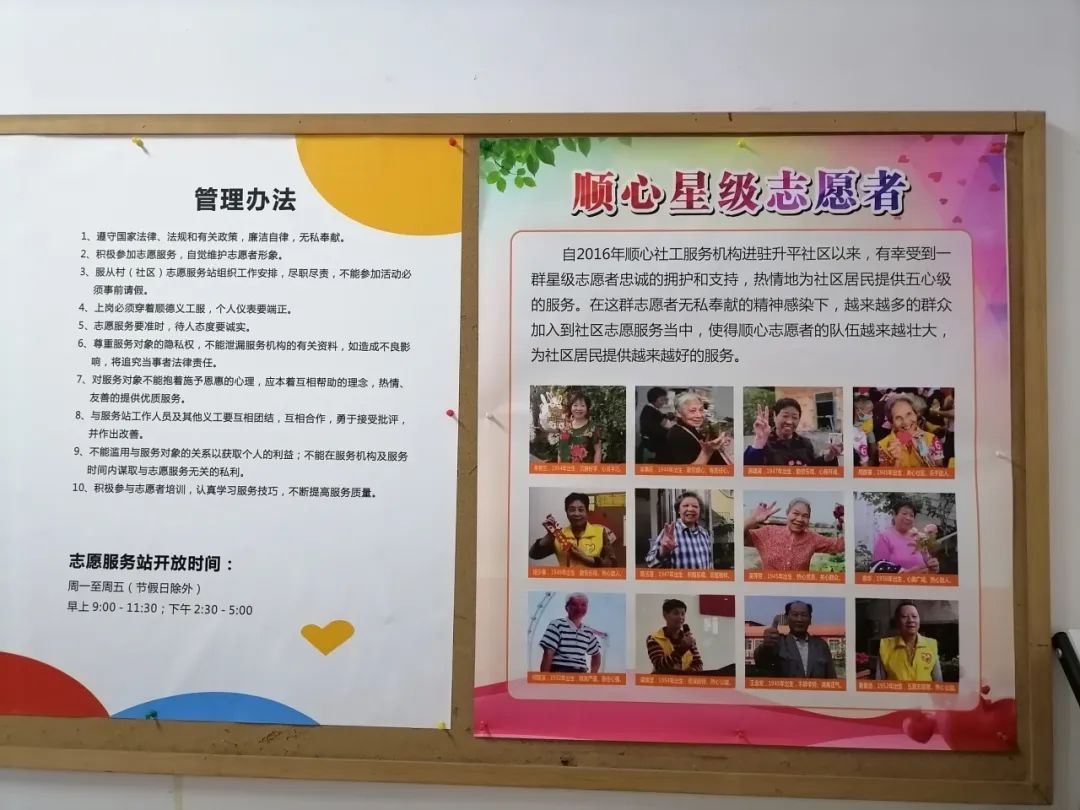 管理办法
1、遵守国家法律、法规和有关政策，廉洁自律，无私奉献。
2、积极参加志愿服务，自觉维护志愿者形象。
3、服从村（社区）志愿服务站组织工作安排，尽职尽责，不能参加活动必
须事前请假。
4、上岗必须穿着顺德义工服，个人仪表要端正。
5、志愿服务要准时，待人态度要诚实。
6、尊重服务对象的隐私权，不能泄漏服务机构的有关资料，如造成不良影
响，将追究当事者法律责任。
7、对服务对象不能抱着施予恩惠的心理，应本着互相帮助的理念，热情、
友善的提供优质服务。
8、与服务站工作人员及其他义工要互相团结，互相合作，勇于接受批评，
并作出改善。
9、不能滥用与服务对象的关系以获取个人的利益；不能在服务机构及服务
时间内谋取与志愿服务无关的私利。
10、积极参与志愿者培训，认真学习服务技巧，不断提高服务质量。
志愿服务站开放时间：
周一至周五（节假日除外）
早上 9:00 - 11:30；下午 2:30 - 5:00
顺心星级志愿者
自2016年顺心社工服务机构进驻升平社区以来，有幸受到一
群星级志愿者忠诚的拥护和支持，热情地为社区居民提供五心级
的服务。在这群志愿者无私奉献的精神感染下，越来越多的群众
加入到社区志愿服务当中，使得顺心志愿者的队伍越来越壮大，
为社区居民提供越来越好的服务。